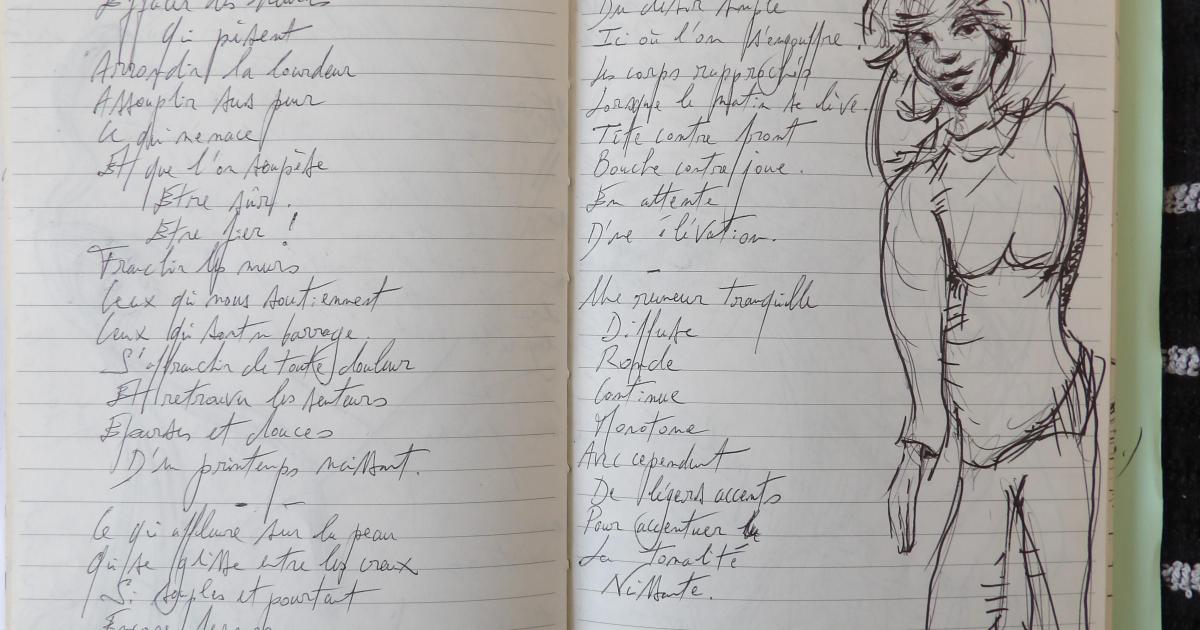 Effacer des
qui pèsent
Arrondir la lourdeur
Assouplir sans peur
Ce qui menace
Et que l'on soupèse
Être sûr.
Être fier !
Franchir les murs
Ceux qui nous soutiennent
Ceux qui sont un barrage.
S'affranchir de toute douleur
Et retrouver les senteurs
Éparses et douces
D'un printemps naissant.
Ce qui affleure sur la peau
Qui se glisse entre les creux
Si souples et pourtant
Du désir simple
Ici où l'on s'engouffre.
Les corps rapprochés
Lorsque le matin se lève.
Tête contre front
Bouche contre joue.
En attente
D'une élévation.
Une rumeur tranquille
Diffuse
Ronde
Continue
Monotone
Avec cependant
De légers accents
Pour accentuer
La tonalité
Naissante.